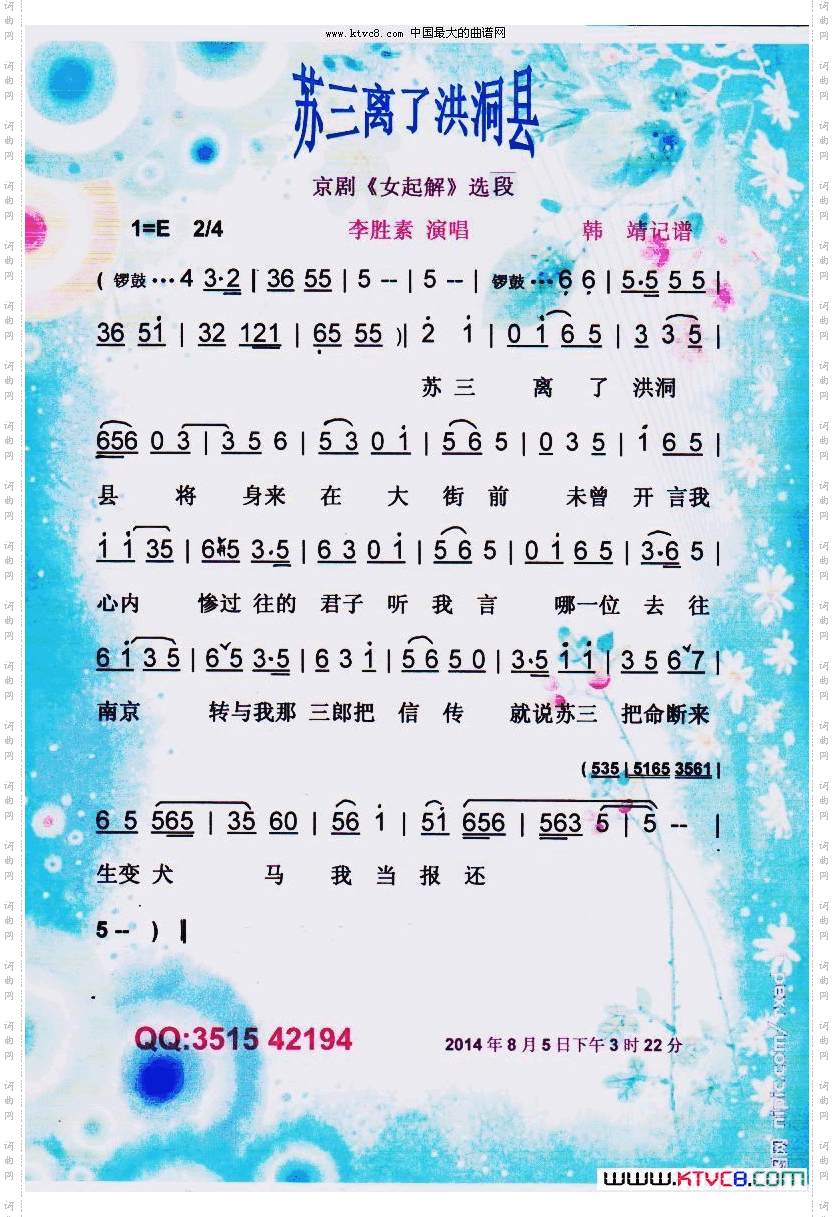 www.ktvc8.com 中国最大的曲谱网
苏三离了洪洞县
京剧《女起解》选段
1=E 2/4 李胜素 演唱 韩 靖记谱
( 锣鼓 ··· 4 3·2 | 36 55 | 5 -- | 5 -- | 锣鼓 ··· 6 6 | 5·5 5 5 |
36 51 | 32 121 | 65 55 )| 2 1 | 0 1 6 5 | 3 3 5 |
苏 三 离 了 洪洞
656 0 3 | 3 5 6 | 5 3 0 1 | 5 6 5 | 0 3 5 | 1 6 5 |
县 将 身来 在 大 街 前 未曾 开 言我
1 1 35 | 645 3·5 | 6 3 0 1 | 5 6 5 | 0 1 6 5 | 3·6 5 |
心内 惨过 往的 君子 听 我 言 哪一位 去 往
6 1 3 5 | 6 5 3·5 | 6 3 1 | 5 6 5 0 | 3·5 1 1 | 3 5 6 7 |
南京 转与我那 三郎把 信 传 就说苏三 把命断来
( 535 | 5165 3561 |
6 5 565 | 35 60 | 56 1 | 51 656 | 563 5 | 5 -- |
生变 犬 马 我 当 报 还
5 -- ) ‖
QQ:3515 42194
2014 年 8 月 5 日下午 3 时 22 分
www.KTVC8.com